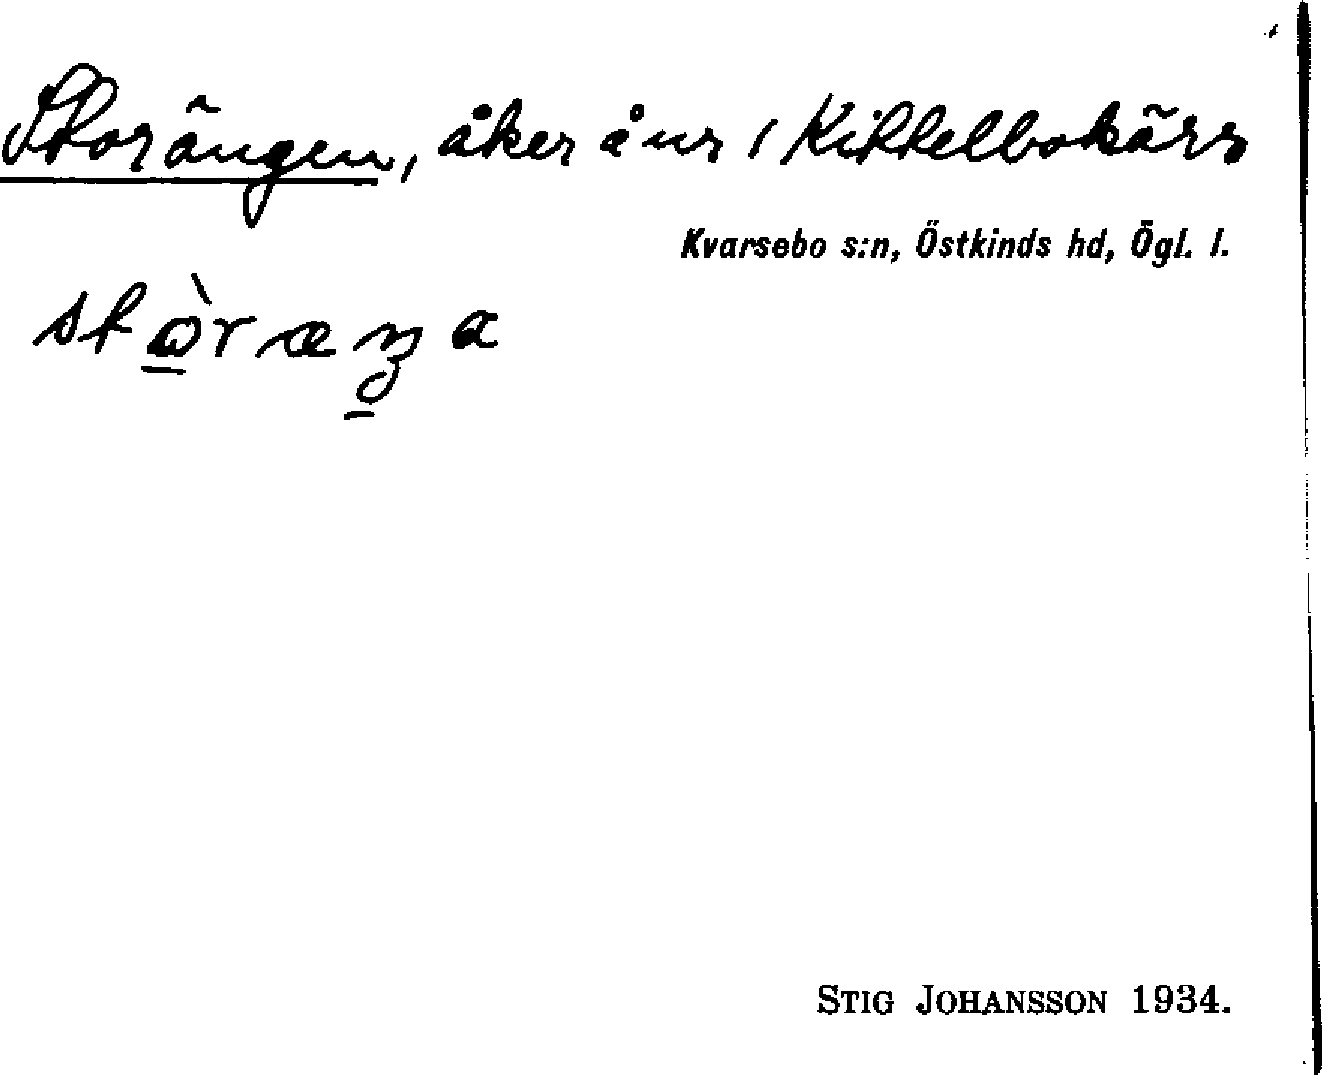 Storängen, åker å ur / Kittelbokärr
Kvarsebo s:n, Östkinds hd, Ögl. l.
stòræŋa
STIG JOHANSSON 1934.